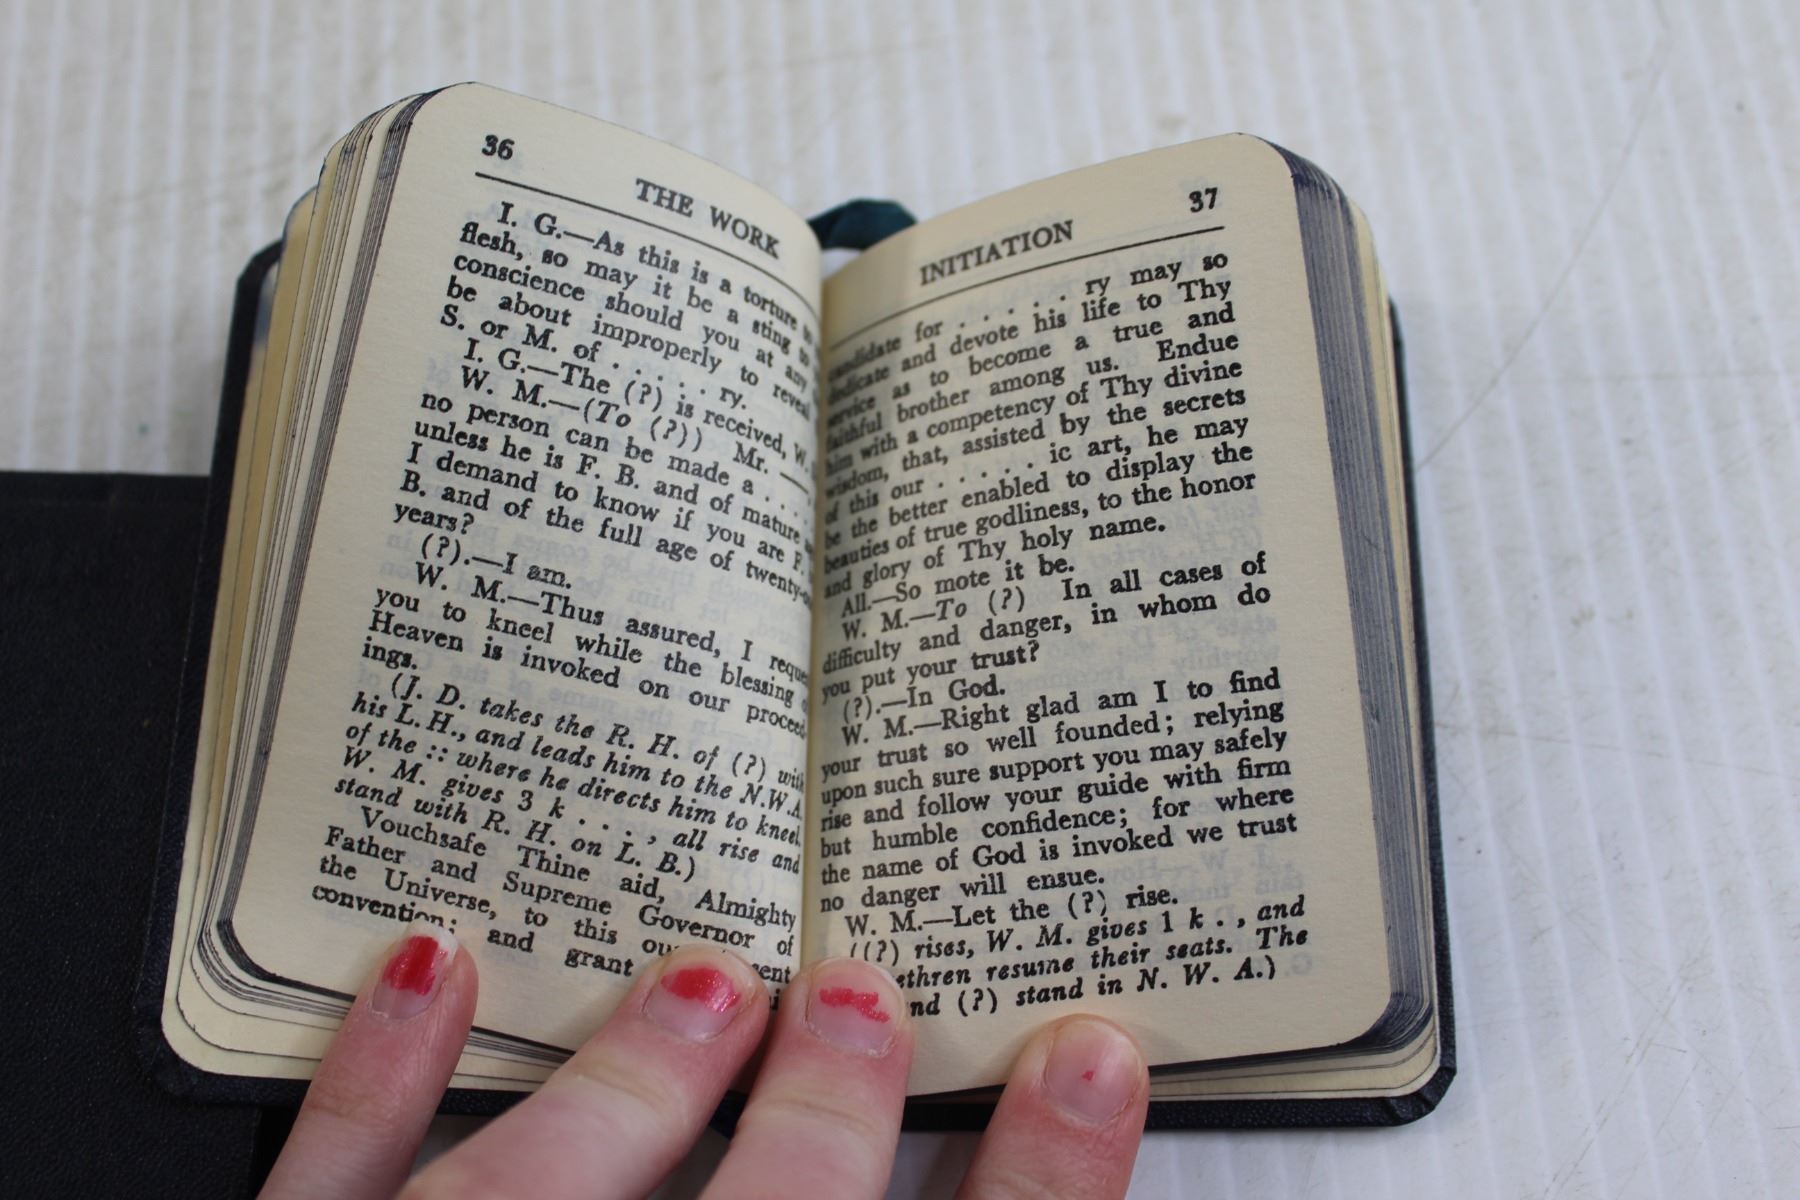 36
THE WORK
I. G.—As this is a torture
flesh, so may it be a sting
conscience should you at any
be about improperly to reveal
S. or M. of . . . . . ry.
I. G.—The (?) is received, W.
W. M.—(To (?)) Mr. —,
no person can be made a . . . .
unless he is F. B. and of mature
I demand to know if you are F.
B. and of the full age of twenty-
years?
(?).—I am.
W. M.—Thus assured, I
you to kneel while the blessing
Heaven is invoked on our proceed-
ings.
(J. D. takes the R. H. of (?) with
his L. H., and leads him to the N.W.A.
of the :: where he directs him to kneel.
W. M. gives 3 k . . . , all rise and
stand with R. H. on L. B.)
Vouchsafe Thine aid, Almighty
Father and Supreme Governor of
the Universe, to this
convention; and grant
37
INITIATION
candidate for . . . . . ry may so
dedicate and devote his life to Thy
service as to become a true and
faithful brother among us. Endue
him with a competency of Thy divine
wisdom, that, assisted by the secrets
of this our . . . . . ic art, he may
be the better enabled to display the
beauties of true godliness, to the honor
and glory of Thy holy name.
All.—So mote it be.
W. M.—To (?) In all cases of
difficulty and danger, in whom do
you put your trust?
(?).—In God.
W. M.—Right glad am I to find
your trust so well founded; relying
upon such sure support you may safely
rise and follow your guide with firm
but humble confidence; for where
the name of God is invoked we trust
no danger will ensue.
W. M.—Let the (?) rise.
((?) rises, W. M. gives 1 k . , and
ethren resume their seats. The
nd (?) stand in N. W. A.)